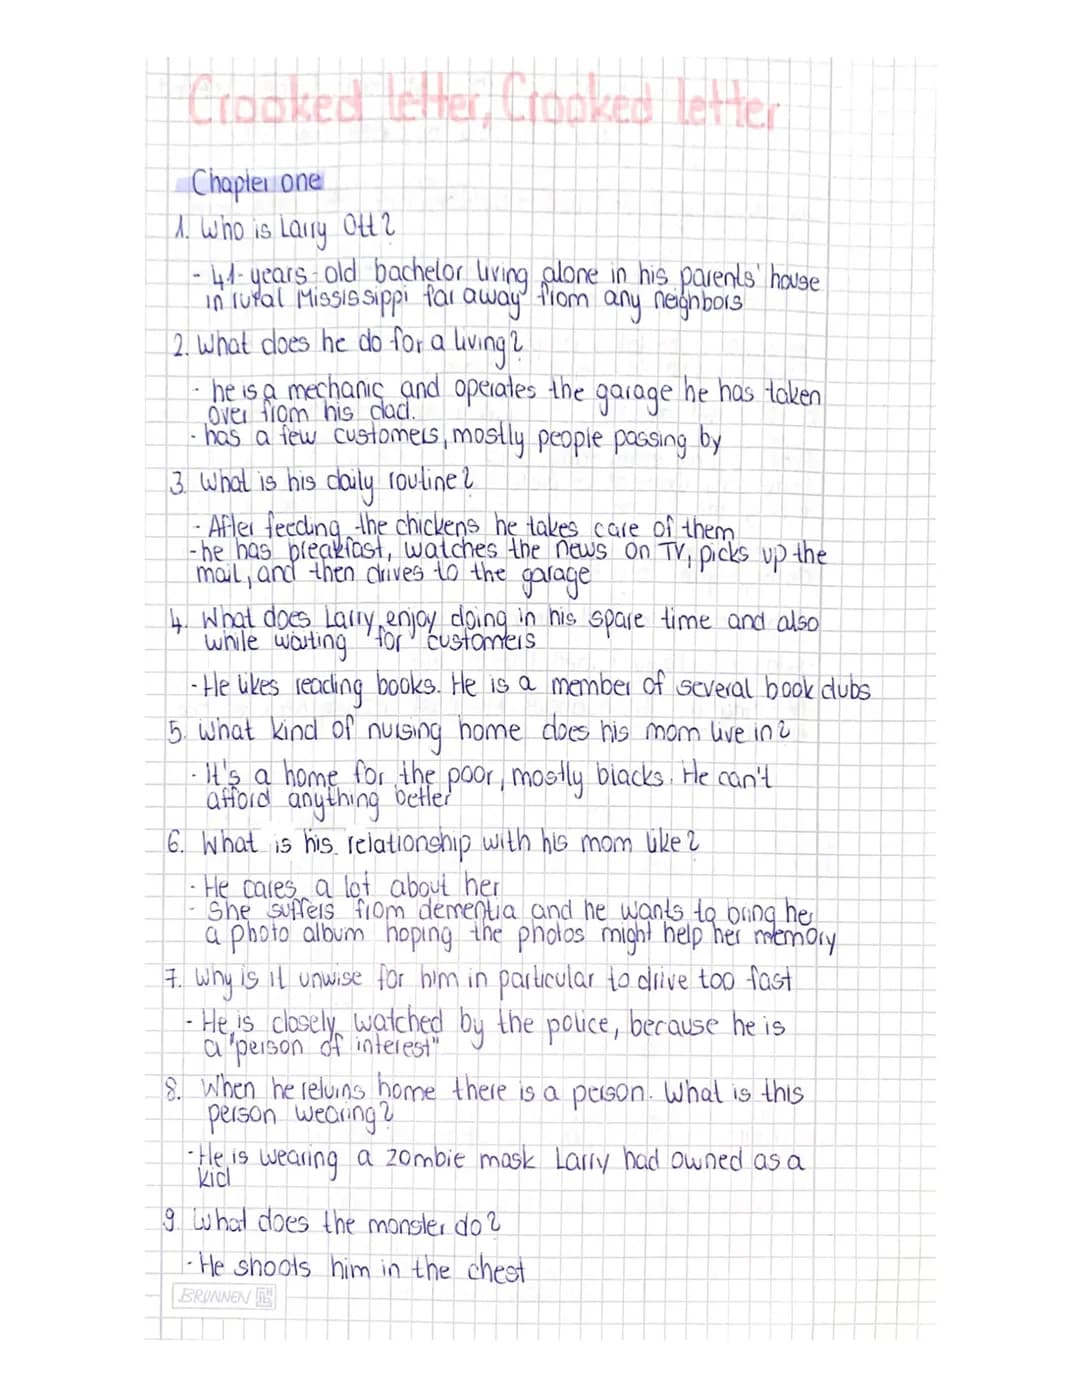 Crooked letter, Crooked letter
Chapter one
1. Who is Larry Ott?
- 41-years-old bachelor living alone in his parents' house
in rural Mississippi far away from any neighbors
2. What does he do for a living?
- he is a mechanic and operates the garage he has taken
over from his dad.
- has a few customers, mostly people passing by
3. What is his daily routine?
- After feeding the chickens he takes care of them
- he has breakfast, watches the news on TV, picks up the
mail, and then drives to the garage
4. What does Larry enjoy doing in his spare time and also
while waiting for customers
- He likes reading books. He is a member of several book clubs
5. What kind of nursing home does his mom live in?
- It's a home for the poor, mostly blacks. He can't
afford anything better
6. What is his relationship with his mom like?
- He cares a lot about her
- She suffers from dementia and he wants to bring her
a photo album hoping the photos might help her memory
7. Why is it unwise for him in particular to drive too fast
- He is closely watched by the police, because he is
a "person of interest"
8. When he returns home there is a person. What is this
person wearing?
- He is wearing a zombie mask Larry had owned as a
kid
9. What does the monster do?
- He shoots him in the chest
BRUNNEN